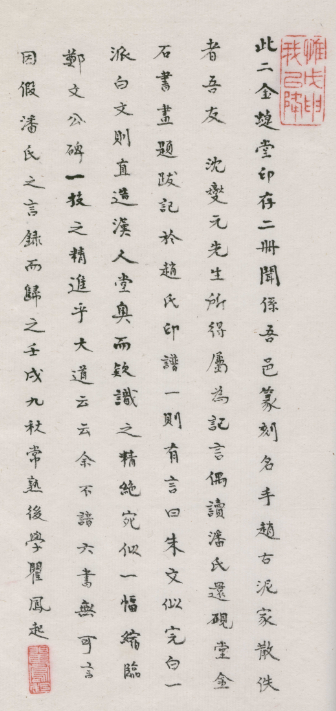 此二金蜨堂印存二冊聞係吾邑篆刻名手趙古泥家散佚
者吾友 沈燮元先生所得屬為記言偶讀潘氏還硯堂金
石書畫題跋記於趙氏印譜一則有言曰朱文似完白一
派白文則直造漢人堂奥而欵識之精絕宛似一幅縮臨
鄭文公碑一技之精進乎大道云云余不諳六書無可言
因假潘氏之言錄而歸之壬戌九秋常熟後學瞿鳳起
惟戊申
我以降